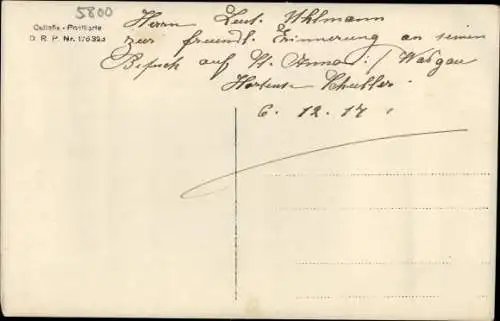 5800
Postkarte
D. R. P. Nr.
Herrn Leut. Uhlmann
zur freundl. Erinnerung an seinen
Besuch auf St. Anna i/ Wasgau
Hortense Schuller
6. 12. 17.